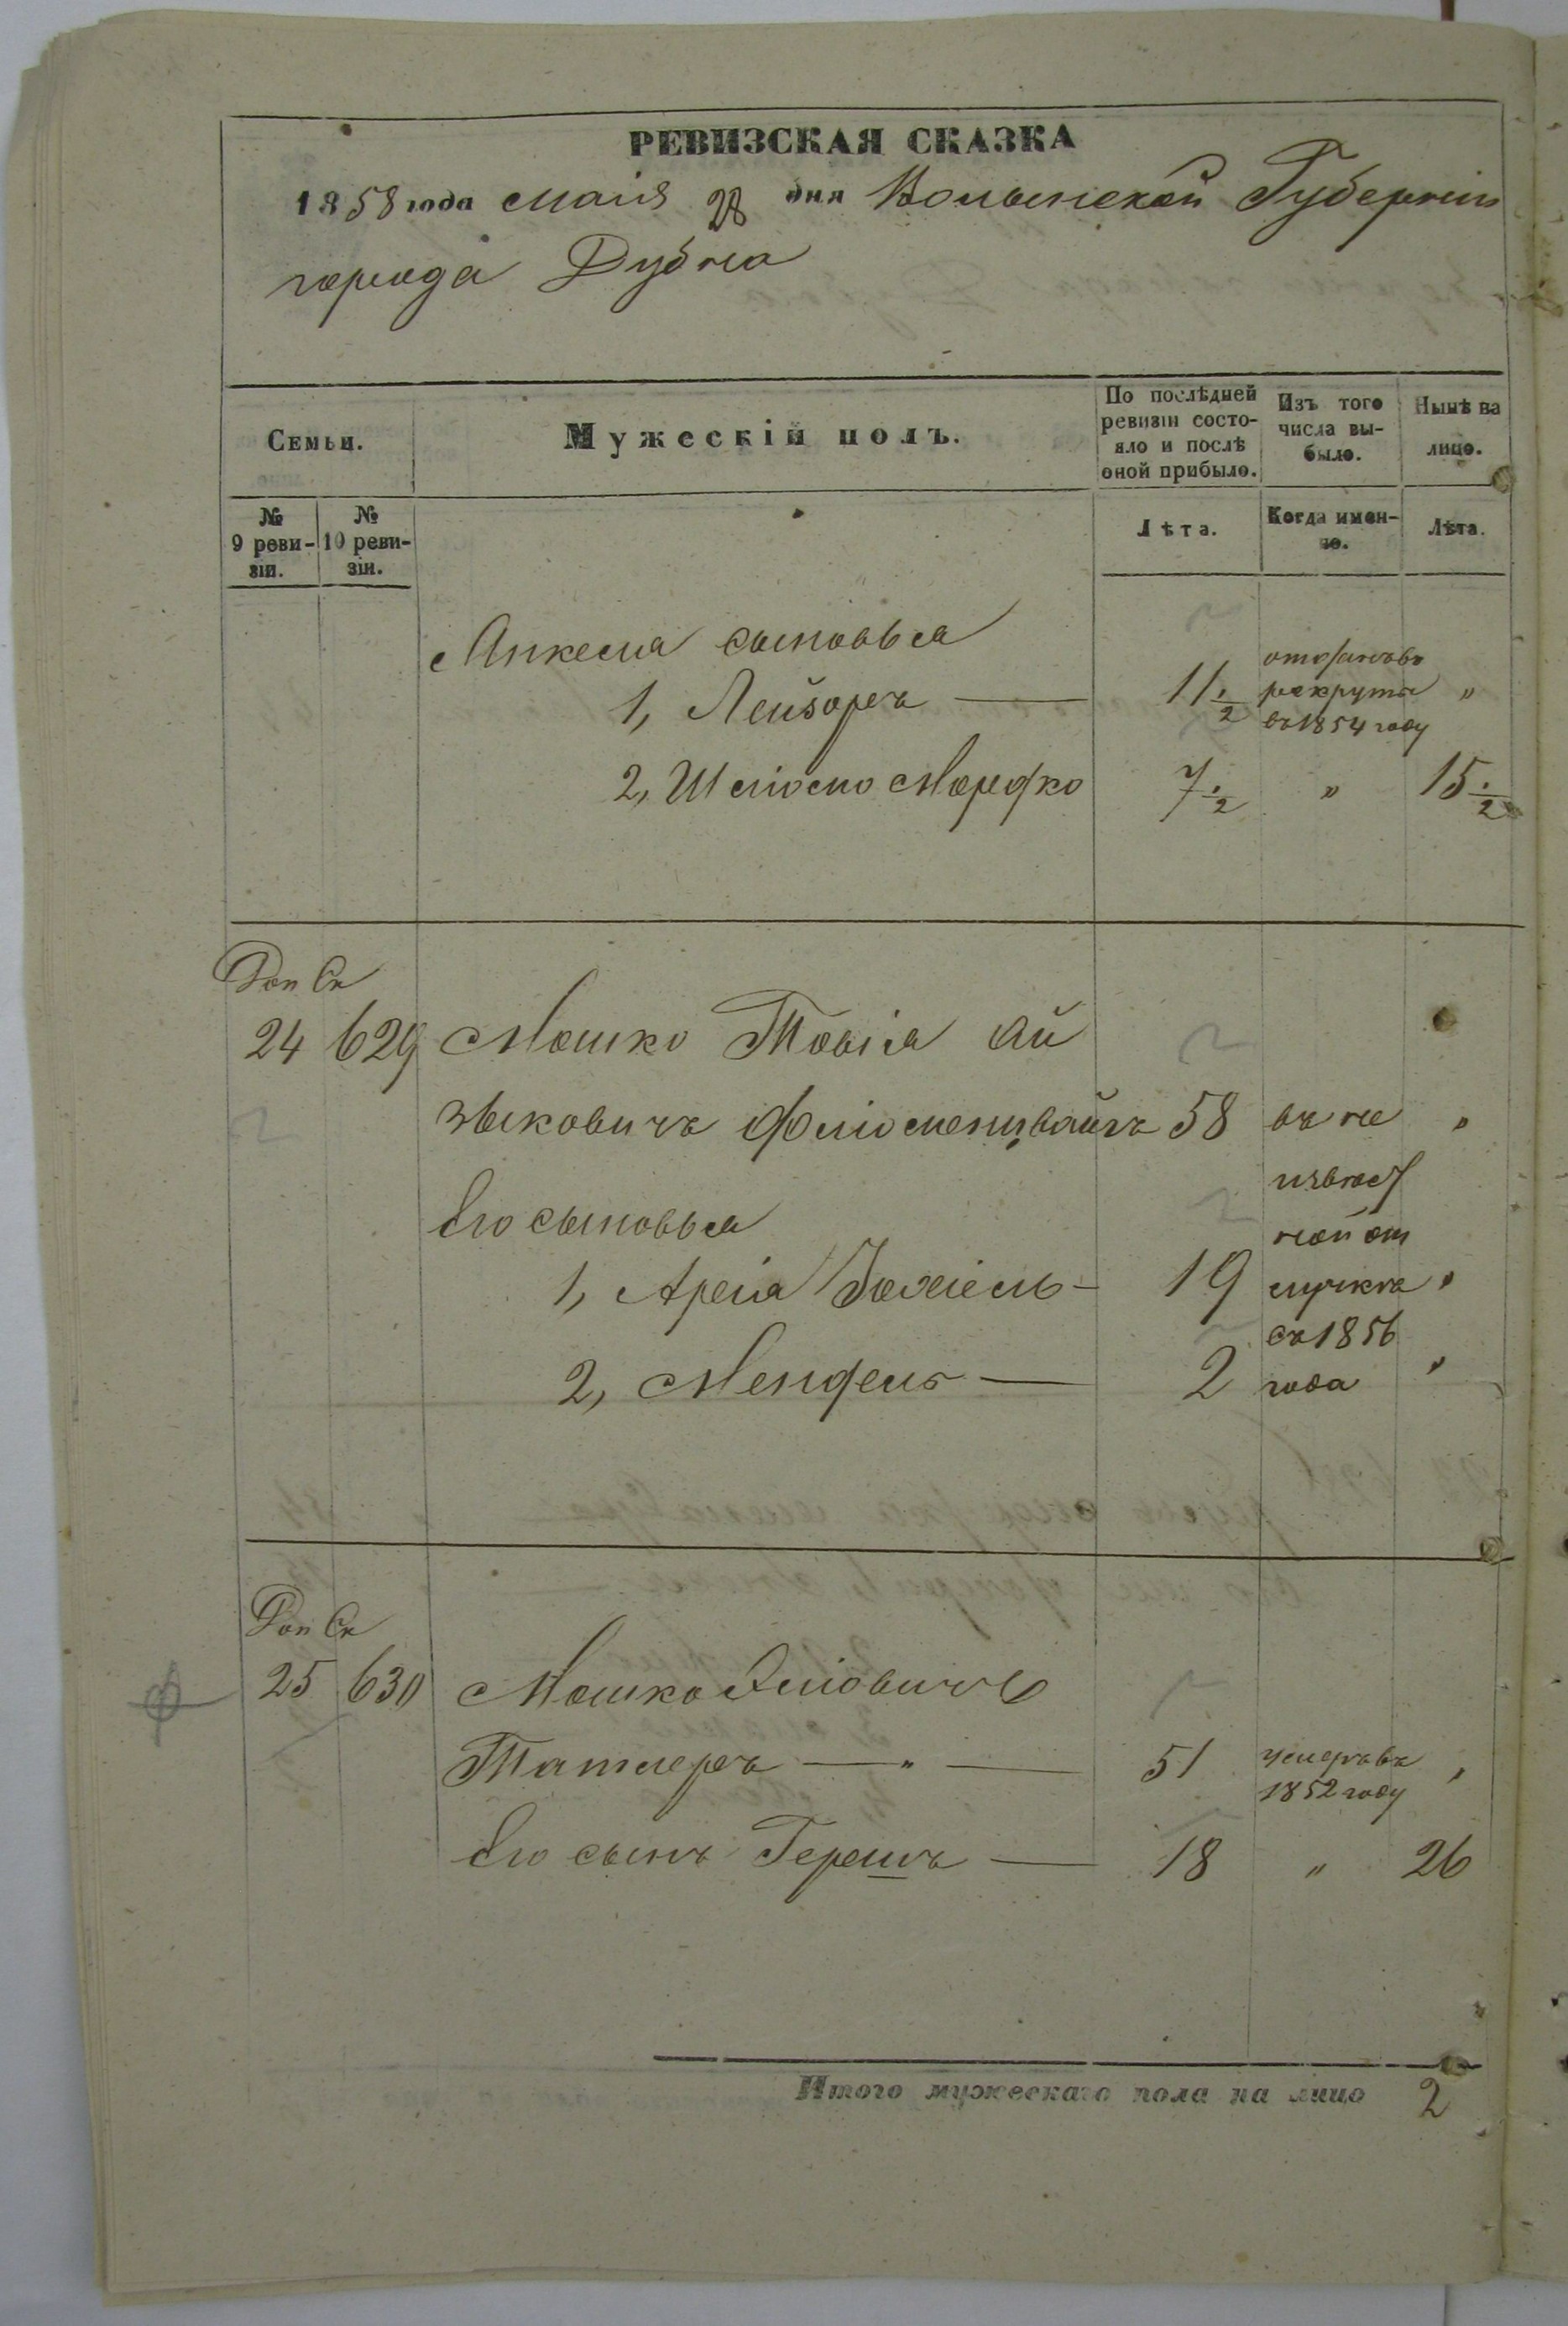 РЕВИЗСКАЯ СКАЗКА
1858 года маія 28 дня Волынской Губерніи
города Дубна
Семьи.
Мужескій полъ.
По послѣдней ревизіи состояло и послѣ оной прибыло.
Изъ того числа выбыло.
Нынѣ на лицо.
№ 9 ревизіи.
№ 10 ревизіи.
Лѣта.
Когда именно.
Лѣта.
Анкеля сыновья
1, Лейзоръ — 11 1/2 отданъ въ рекруты въ 1854 году "
2, Шліомо Мордко 7 1/2 " 15 1/2
Доп Ск
24 629 Мошко Товія Ай
зыковичъ Флюменцвайгъ 58 въ не "
Его сыновья извѣст
ной от
1, Арія Іохіель - 19 лучкѣ "
съ 1856
2, Мендель — 2 года "
Доп Ск
25 630 Мошко Эліовичъ
Татлеръ — " — 51 умеръ въ 1852 году "
Его сынъ Гершъ — 18 " 26
Итого мужескаго пола на лицо 2